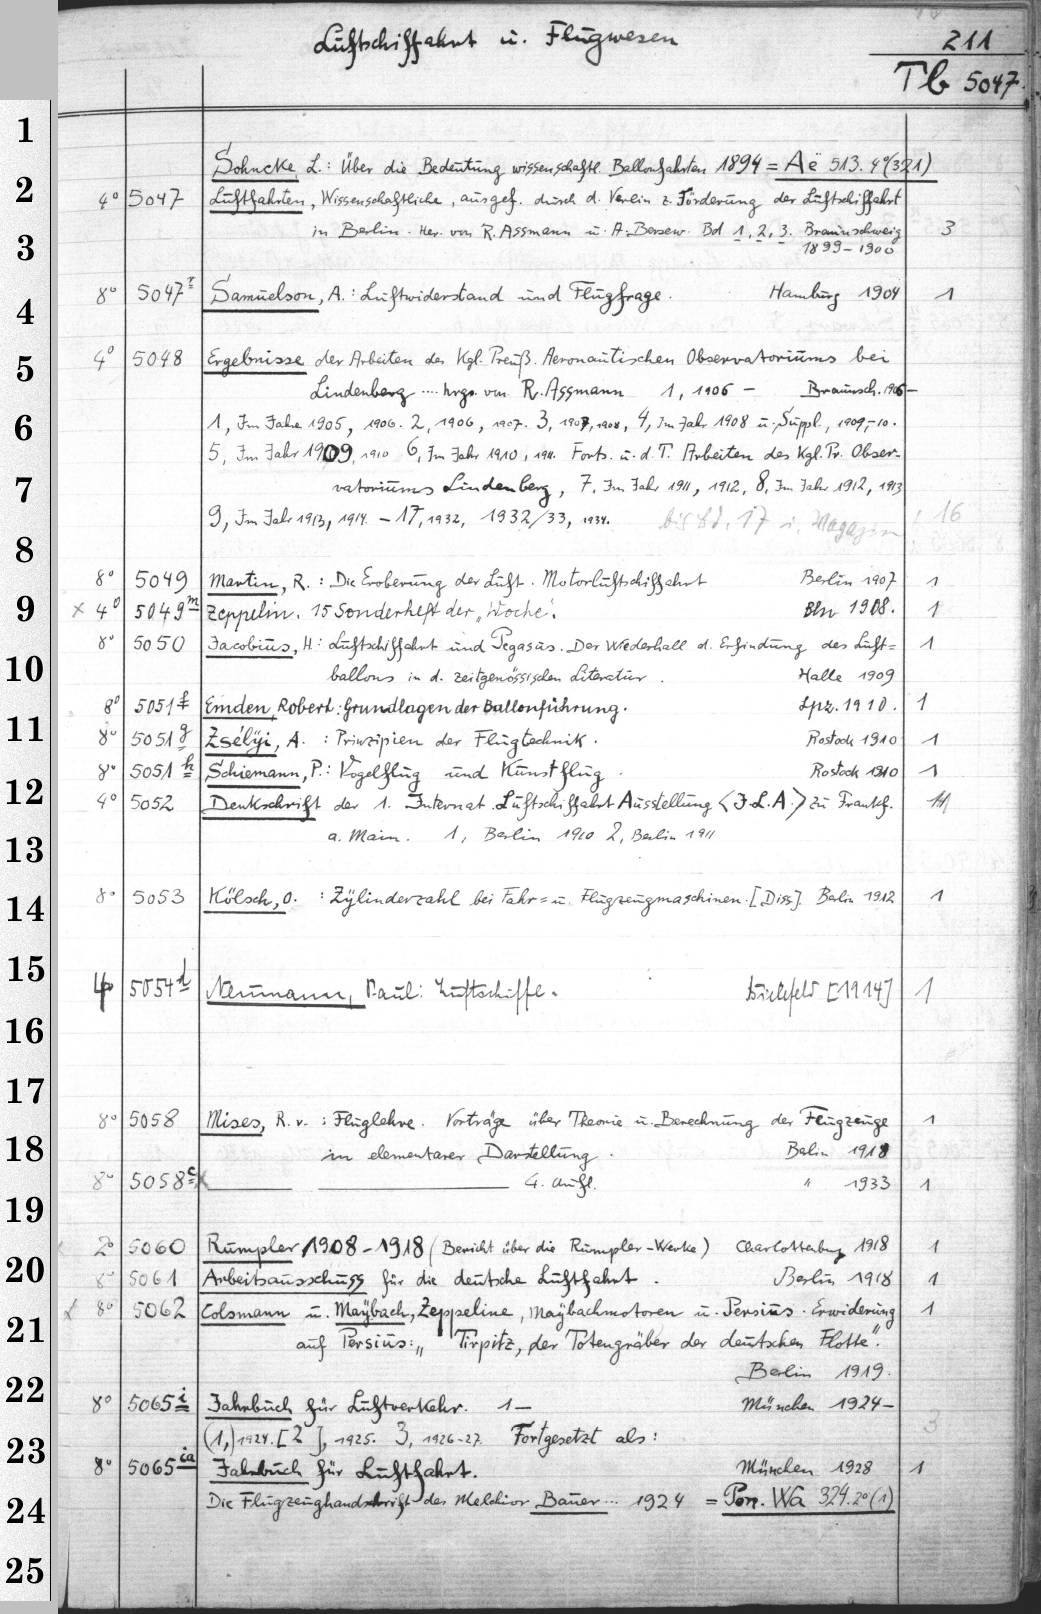 Luftschiffahrt u. Flugwesen
211
Tb 5047.
1
Sohncke L.: Über die Bedeutung wissenschaftl. Ballonfahrten 1894 = Aë 513. 4°(321)
2
4° 5047 Luftfahrten, Wissenschaftliche, ausgef. durch d. Verein z. Förderung der Luftschiffahrt
in Berlin. Her. von R. Assmann u. A. Berson. Bd 1, 2, 3. Braunschweig 3
3
1899-1900
8° 5047r Samuelson, A.: Luftwiderstand und Flugfrage. Hamburg 1904 1
4
4° 5048 Ergebnisse der Arbeiten des Kgl. Preuß. Aeronautischen Observatoriums bei
5
Lindenberg .... hrsg. von R. Assmann 1, 1906 - Braunsch. 1906-
6
1, Im Jahre 1905, 1906. 2, 1906, 1907. 3, 1907, 1908, 4, Im Jahr 1908 u. Suppl., 1909,-10.
5, Im Jahr 1909, 1910 6, Im Jahr 1910, 1911. Forts. u. d. T. Arbeiten des Kgl. Pr. Obser-
7
vatoriums Lindenberg, 7, Im Jahr 1911, 1912, 8, Im Jahr 1912, 1913
9, Im Jahr 1913, 1914. - 17, 1932, 1932/33, 1934. bis Bd. 17 i. Magazin 16
8
8° 5049 Martin, R.: Die Eroberung der Luft. Motorluftschiffahrt Berlin 1907 1
9
× 4° 5049m Zeppelin. 15 Sonderheft der „Woche". Bln 1908. 1
8° 5050 Jacobius, H: Luftschiffahrt und Pegasus. Der Wiederhall d. Erfindung des Luft= 1
10
ballons in d. zeitgenössischen Literatur. Halle 1909
8° 5051f Emden, Robert: Grundlagen der Ballonführung. Lpz. 1910. 1
11
8° 5051g Zsélyi, A.: Prinzipien der Flugtechnik. Rostock 1910 1
8° 5051h Schiemann, P.: Vogelflug und Kunstflug. Rostock 1910 1
12
4° 5052 Denkschrift der 1. Internat. Luftschiffahrt Ausstellung <I.L.A.> zu Frankf.
a. Main. 1, Berlin 1910 2, Berlin 1911
13
8° 5053 Kölsch, O.: Zylinderzahl bei Fahr= u. Flugzeugmaschinen. [Diss]. Berlin 1912 1
14
15
4° 5054d Neumann, Paul: Luftschiffe. Bielefeld [1914] 1
16
17
8° 5058 Mises, R. v.: Fluglehre. Vorträge über Theorie u. Berechnung der Flugzeuge 1
18
in elementarer Darstellung. Berlin 1918
8° 5058c 4. Aufl. " 1933 1
19
2° 5060 Rumpler 1908-1918 (Bericht über die Rumpler-Werke) Charlottenburg 1918 1
20
8° 5061 Arbeitsausschuss für die deutsche Luftfahrt. Berlin 1918 1
8° 5062 Colsmann u. Maybach, Zeppeline, Maybachmotoren u. Persius. Erwiderung 1
21
auf Persius: „Tirpitz, der Totengräber der deutschen Flotte".
Berlin 1919.
22
8° 5065i Jahrbuch für Luftverkehr. 1- München 1924-
(1,) 1924. [2], 1925. 3, 1926-27. Fortgesetzt als: 3
23
8° 5065ia Jahrbuch für Luftfahrt. München 1928 1
Die Flugzeughandschrift des Melchior Bauer ... 1924 = Pon. Wa 324. 2°(1)
24
25